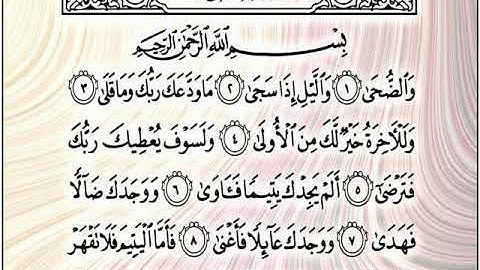 بِسْمِ اللَّهِ الرَّحْمَٰنِ الرَّحِيمِ
وَالضُّحَىٰ ١ وَاللَّيْلِ إِذَا سَجَىٰ ٢ مَا وَدَّعَكَ رَبُّكَ وَمَا قَلَىٰ ٣
وَلَلْآخِرَةُ خَيْرٌ لَّكَ مِنَ الْأُولَىٰ ٤ وَلَسَوْفَ يُعْطِيكَ رَبُّكَ
فَتَرْضَىٰ ٥ أَلَمْ يَجِدْكَ يَتِيمًا فَـَٔاوَىٰ ٦ وَوَجَدَكَ ضَالًّا
فَهَدَىٰ ٧ وَوَجَدَكَ عَائِلًا فَأَغْنَىٰ ٨ فَأَمَّا الْيَتِيمَ فَلَا تَقْهَرْ